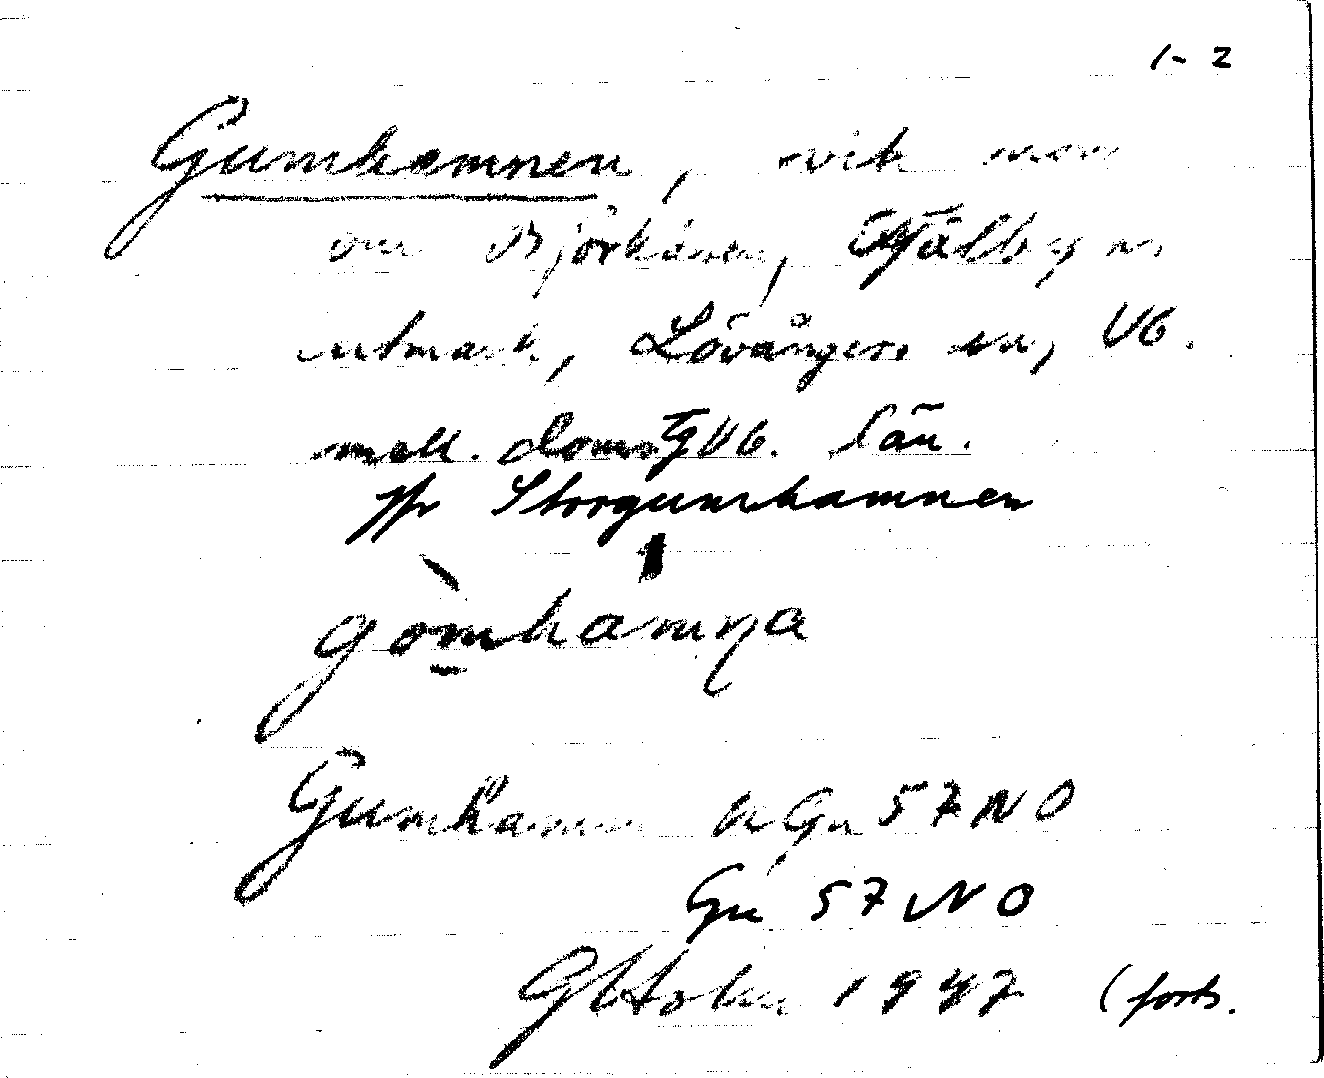 1-2
Gumhamnen, vik norr
om Björkånen, Fjälbyns
utmark, Lövångers sn, Vb.
mell. doms. Vb. län.
jfr Storgumhamnen
gòmhamṇa
Gumhamn Gu 57 NO
Gu 57 NO
1947 (forts.